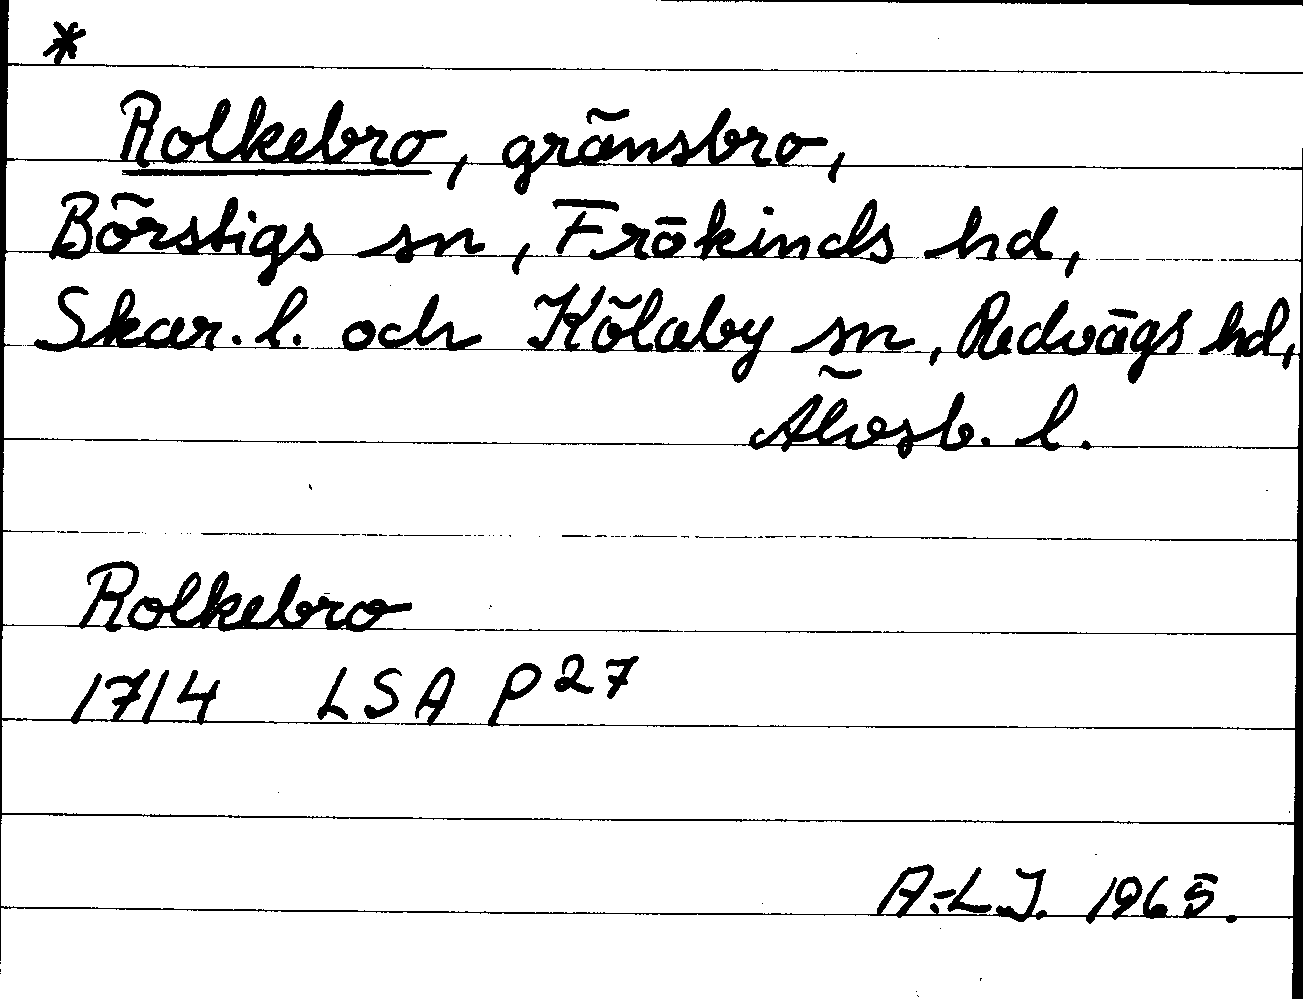 *
Rolkebro, gränsbro,
Börstigs sn, Frökinds hd,
Skar. l. och Kölaby sn, Redvägs hd,
Älvsb. l.
Rolkebro
1714 LSA P27
A:LJ. 1965.